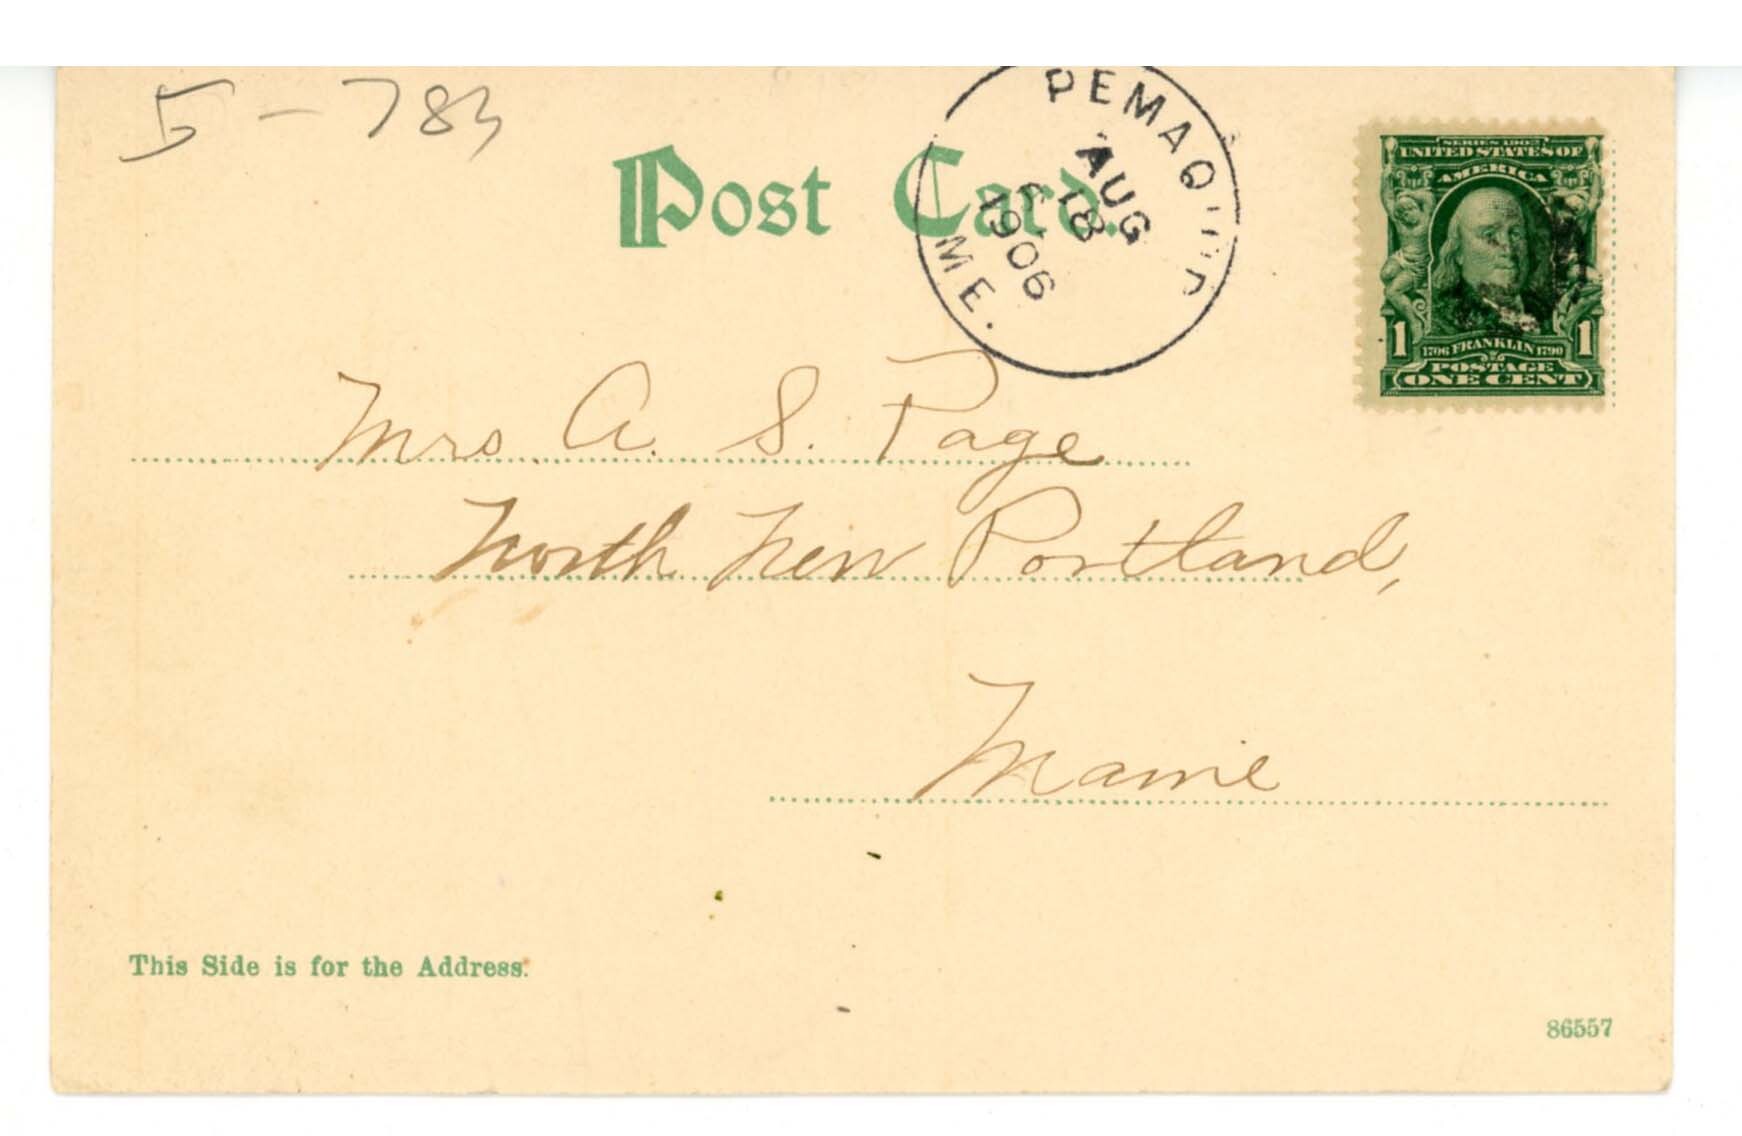 5-783
Post Card.
PEMAQUID
AUG
18
1906
ME.
SERIES 1902
UNITED STATES OF
AMERICA
1 1706 FRANKLIN 1790 1
POSTAGE
ONE CENT
Mrs. A. S. Page
North New Portland,
Maine
This Side is for the Address.
86557